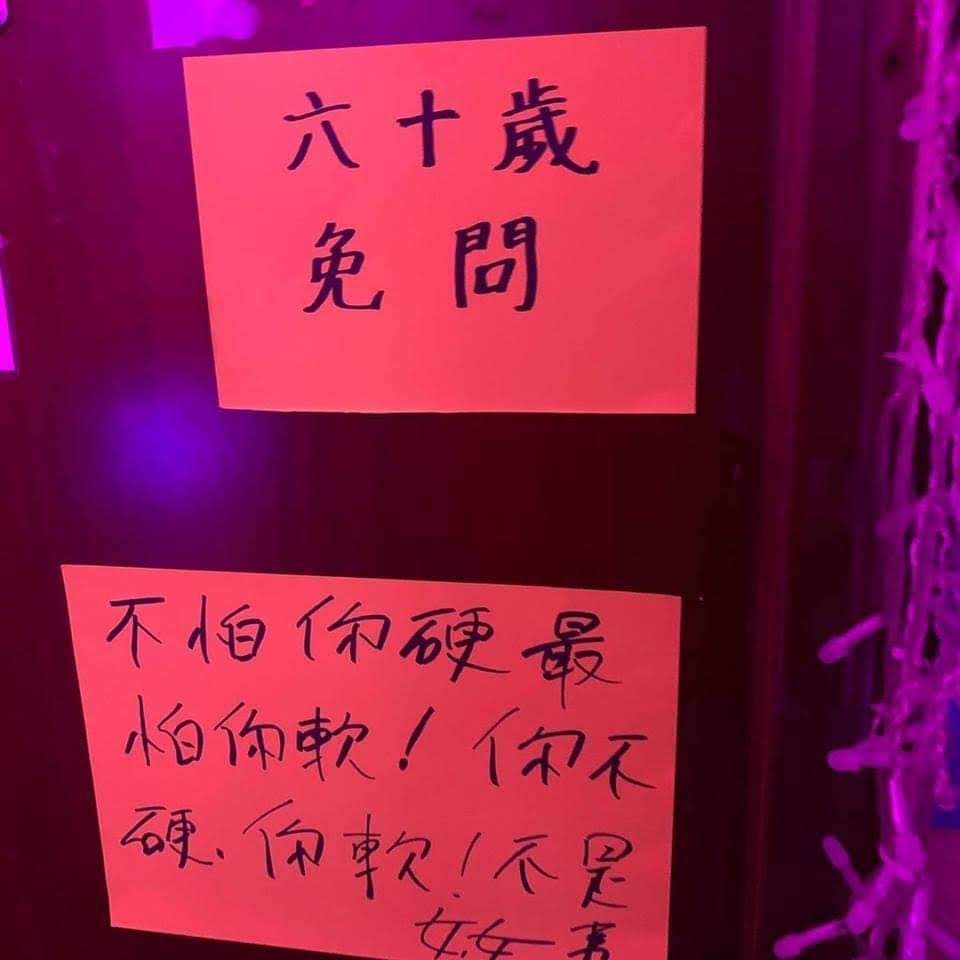 六十歲
免問
不怕你硬最
怕你軟！你不
硬.你軟！不是
女女